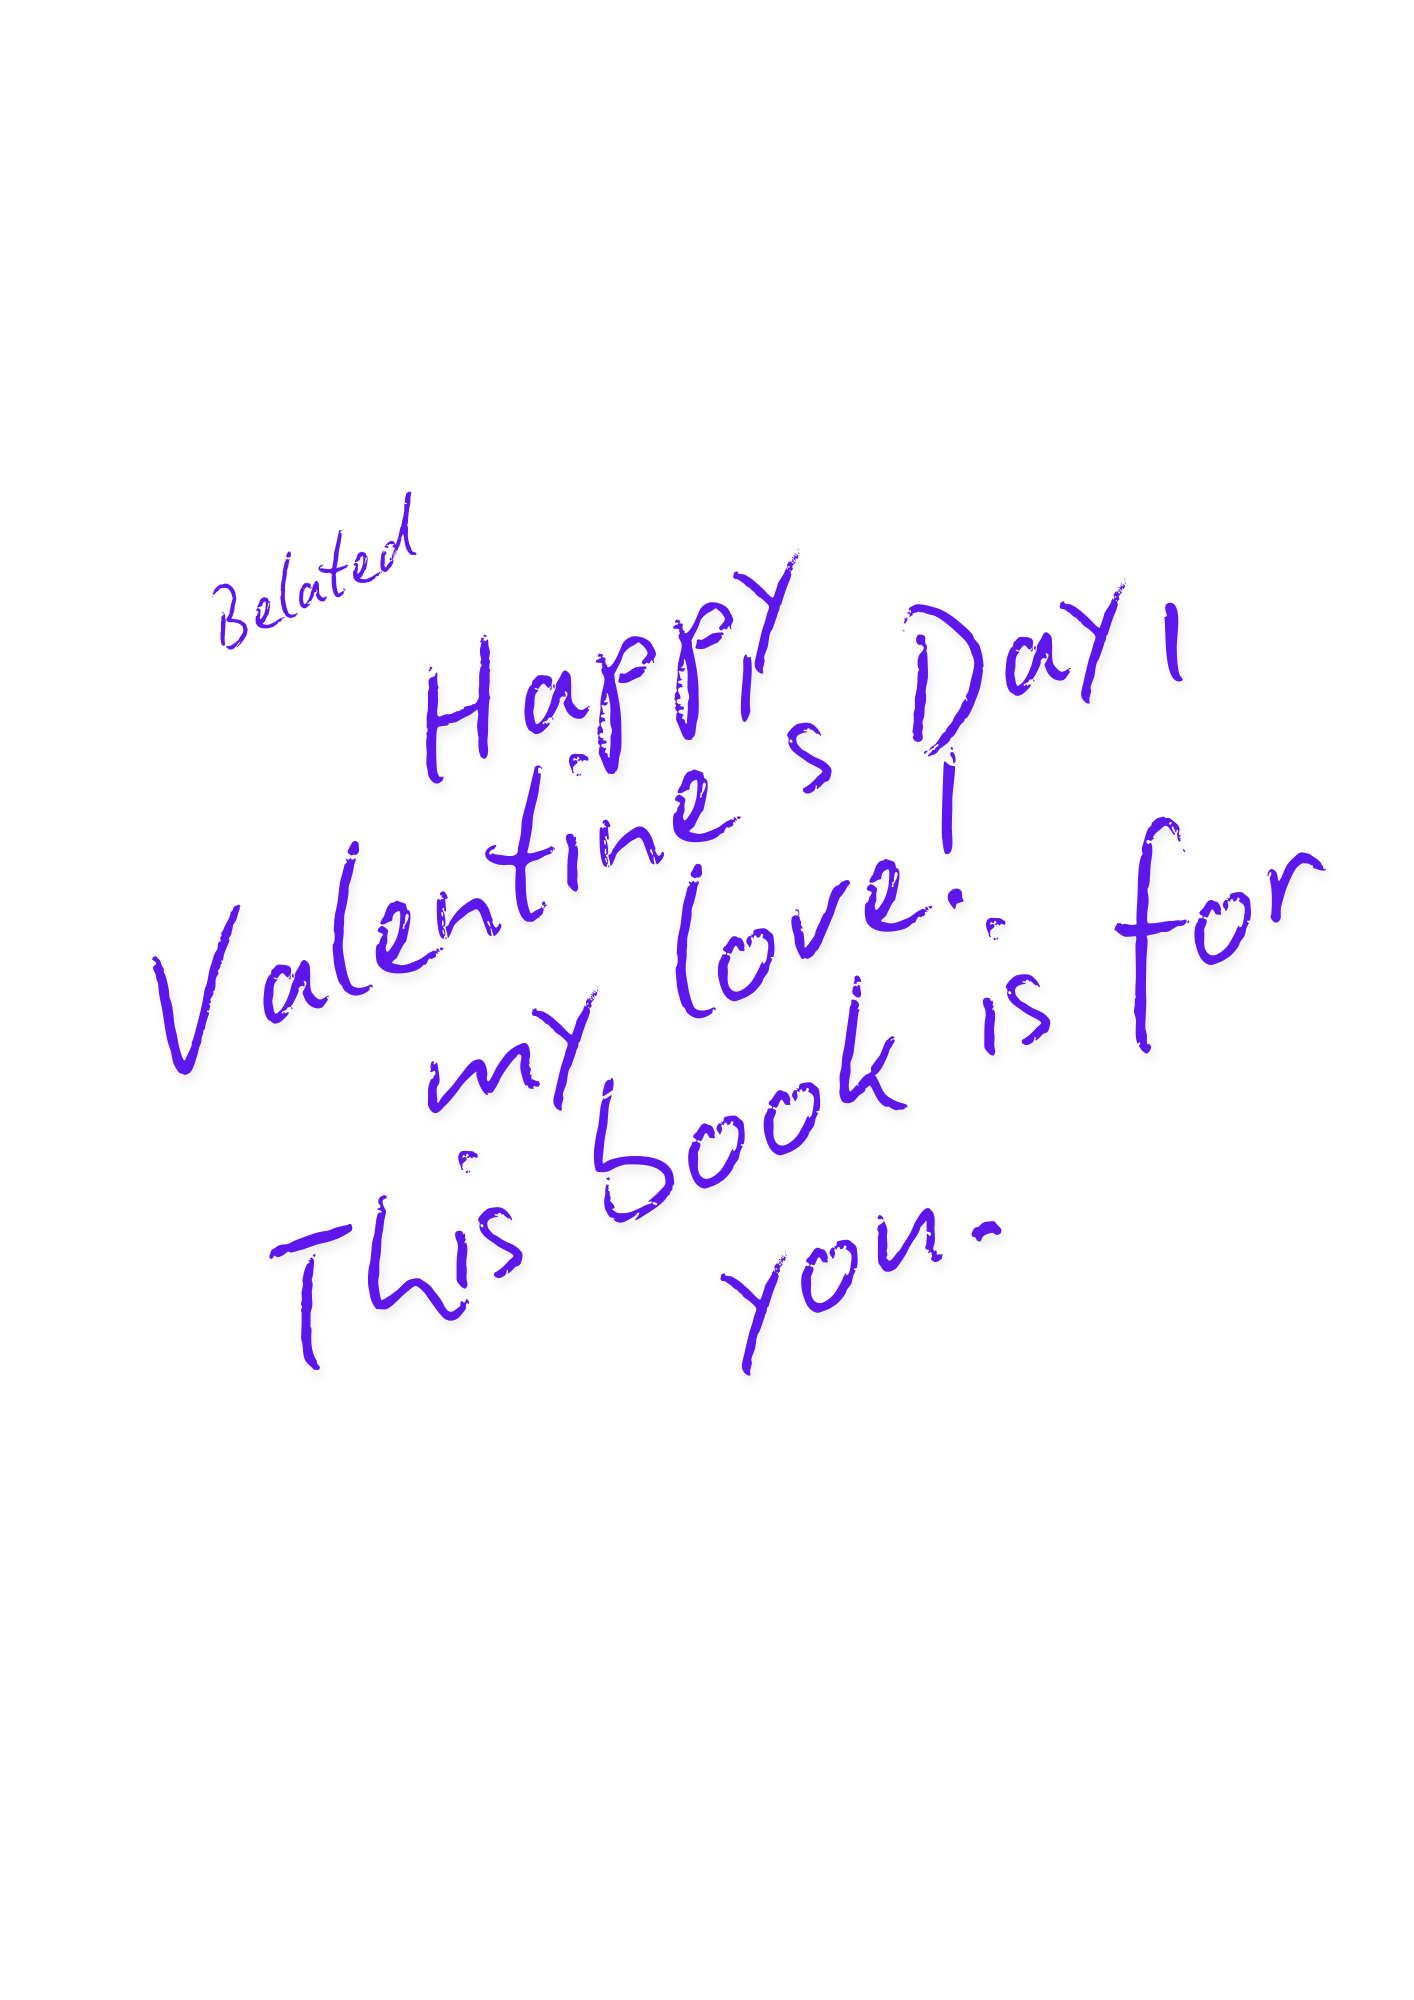 Belated
Happy
Valentines Day!
my love!
This book is for
you.